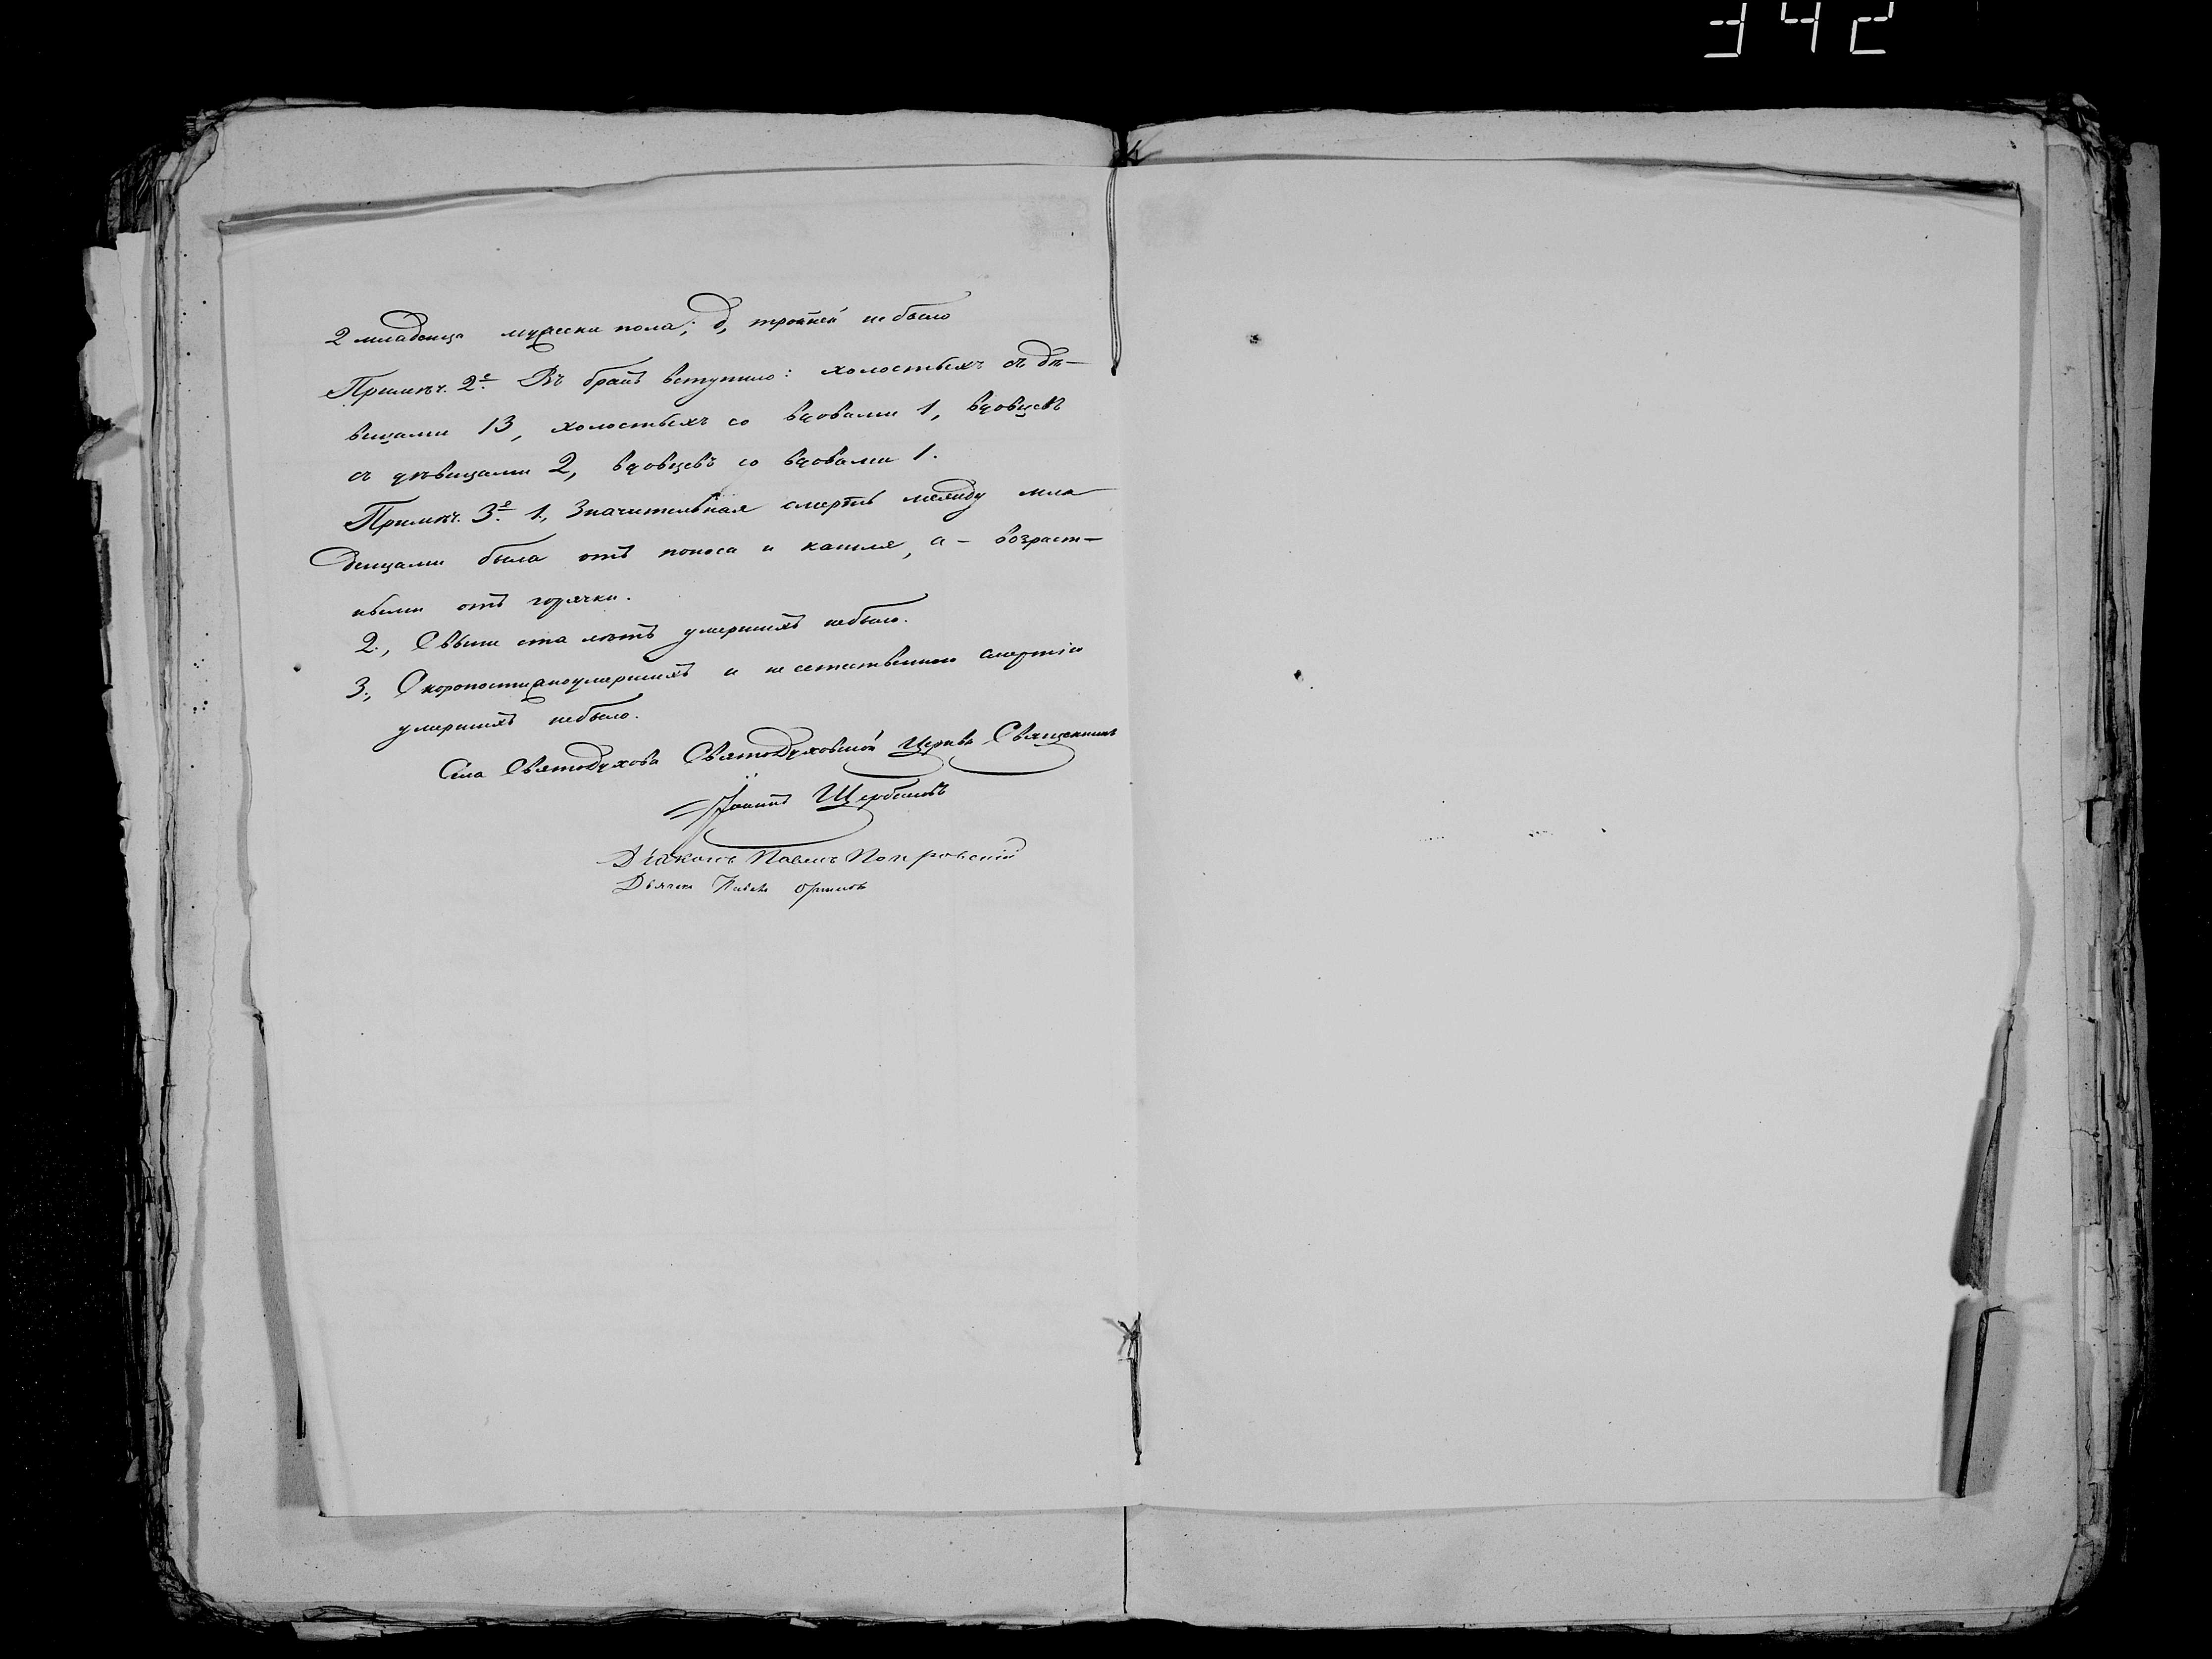 342
2 младенца мужеска пола; д, тройней не было
Примѣч. 2е. Въ бракъ вступило: холостыхъ съ дѣ-
вицами 13, холостыхъ со вдовами 1, вдовцевъ
съ дѣвицами 2, вдовцевъ со вдовами 1.
Примѣч. 3е. 1, Значительная смерть между мла
денцами была отъ поноса и кашля, а - возраст-
ными отъ горячки.
2., Свыше ста лѣтъ умершихъ небыло.
3., Скоропостижноумершихъ и неестественною смертію
умершихъ небыло.
Села Святодухова Святодуховской Церкви Священникъ
Іоаннъ Щербаковъ
Діаконъ Павелъ Покровскій
Дьячекъ Павелъ